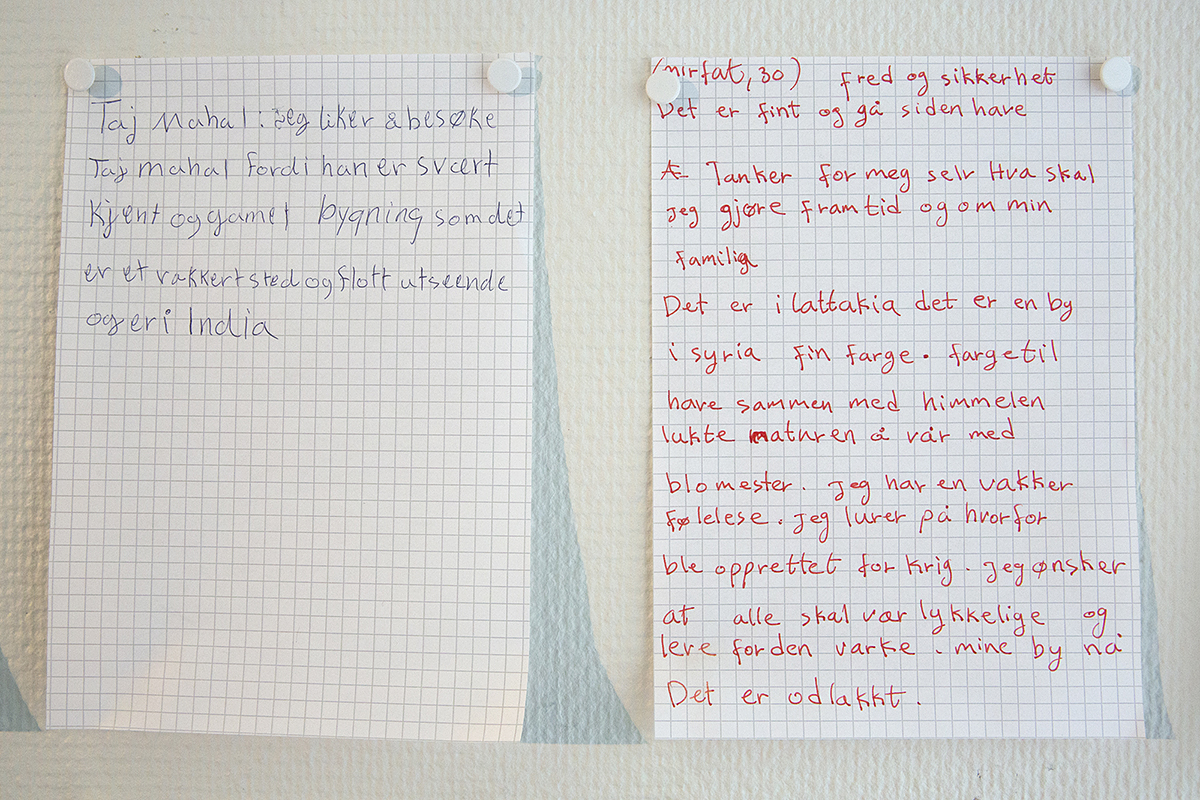 Taj Mahal: jeg liker å besøke
Taj mahal fordi han er svært
kjent og gamel bygning som det
er et vakkert sted og flott utseende
og er i India
(mirfat, 30) fred og sikkerhet
Det er fint og gå siden have
Tanker for meg selv Hva skal
jeg gjøre framtid og om min
familia
Det er i lattakia det er en by
i syria fin farge. farge til
have sammen med himmelen
lukte naturen å vår med
blomester. jeg har en vakker
følelese. jeg lurer på hvorfor
ble opprettet for krig. jeg ønsker
at alle skal vær lykkelige og
leve for den varke. mine by nå
Det er odlakkt.